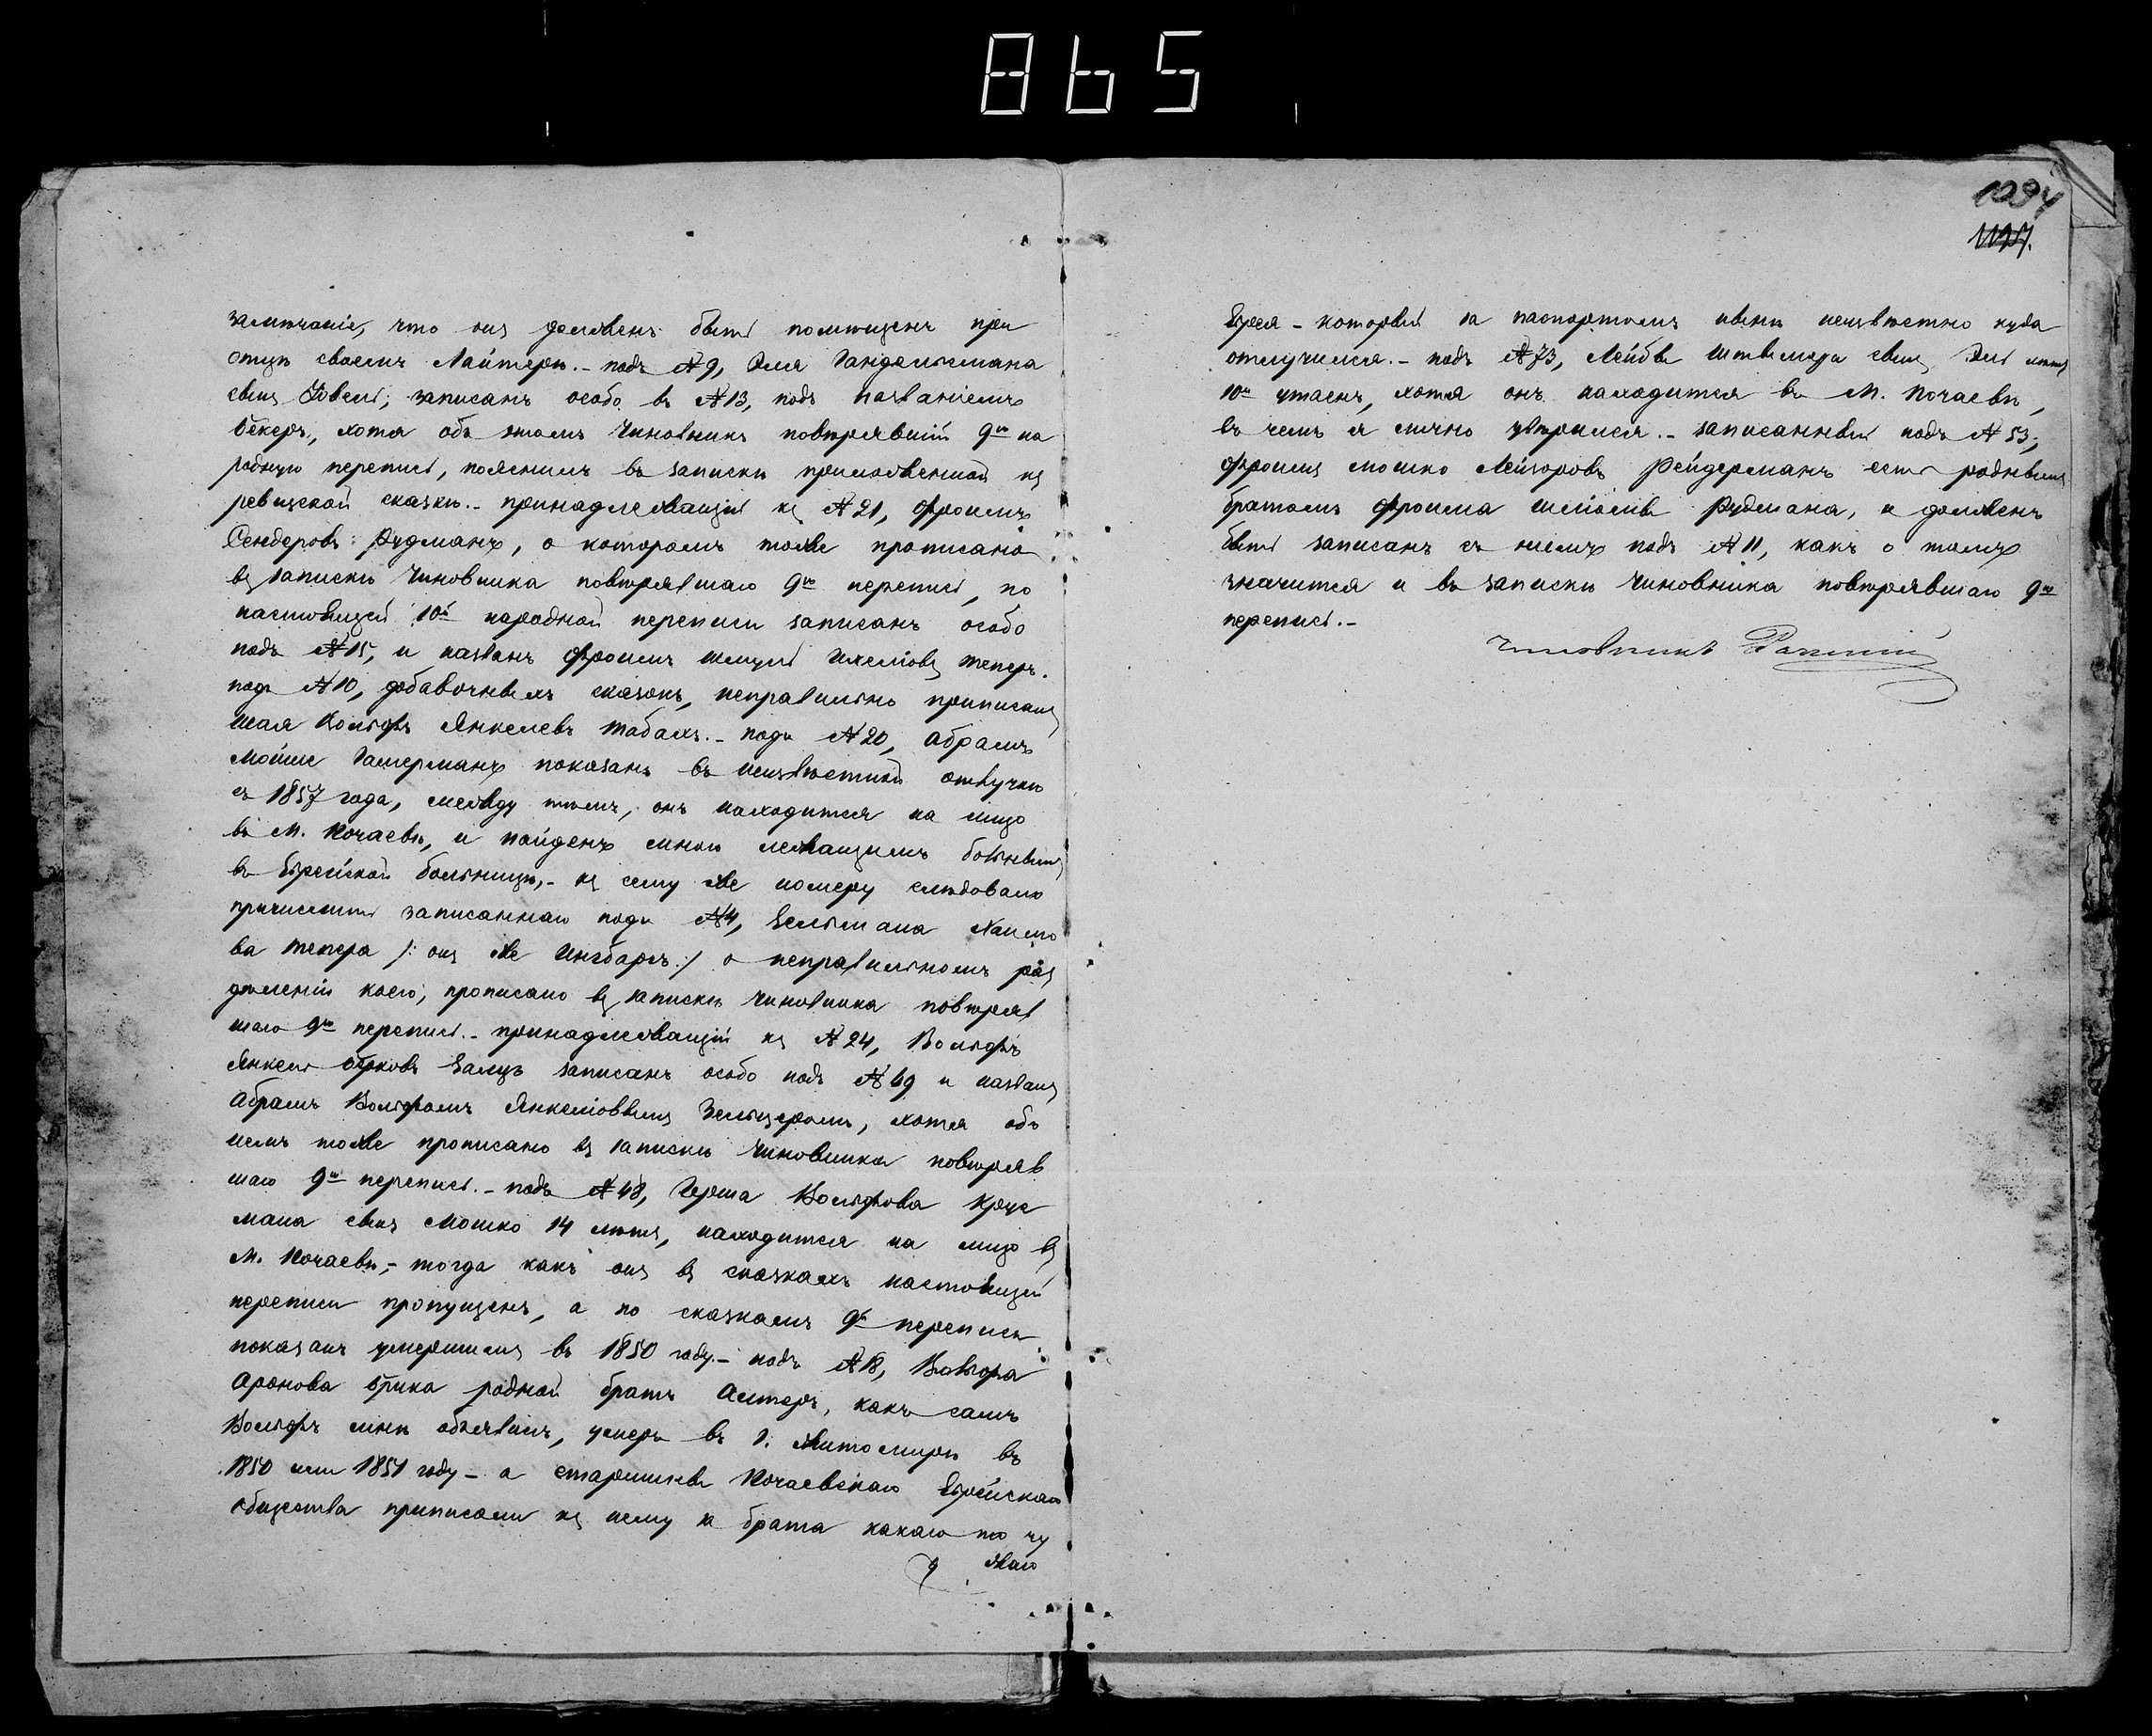 865
1094
замѣчаніе, что онъ долженъ быть помѣщенъ при
отцѣ своемъ Лайтерѣ. - подъ №9, Эля Гандельсмана
сынъ Іовель; записанъ особо въ №13, подъ названіемъ
Бекеръ, хотя объ этомъ Чиновникъ повѣрявшій 9ю на
родную перепись, пояснилъ въ запискѣ приложенной къ
ревизской сказкѣ. - принадлежащій къ №21, Фроимъ
Сендеровъ Рудманъ, о которомъ тоже прописано
въ запискѣ Чиновника повѣрявшаго 9ю перепись, по
настоящей 10й народной переписи записанъ особо
подъ №15, и названъ Фроимъ Шмуль Ихелiовъ Теперъ.
подъ №10, добавочныхъ сказокъ, неправильно приписанъ
Шая Вольфъ Янкелевъ Табахъ. - подъ №20, Абрамъ
Мойше Гамерманъ показанъ въ неизвѣстной отлучкѣ
съ 1857 года, между тѣмъ, онъ находится на лицо
въ М. Почаевѣ, и найденъ мною лежащимъ больнымъ
въ Еврейской больницѣ, - къ сему же номеру слѣдовало
причислить записаннаго подъ №4, Зельмана
ва Тепера /: онъ же Ингбаръ :/ о неправильномъ раз
дѣленіи коего, прописано въ запискѣ Чиновника повѣряв
шаго 9ю перепись. - принадлежащій къ №24, Вольфъ
Янкель Зальцъ записанъ особо подъ №69 и названъ
Абрамъ Вольфомъ Янкеліовымъ Зельцеромъ, хотя объ
немъ тоже прописано въ запискѣ Чиновника повѣряв
шаго 9ю перепись. - подъ №48, Герша Вольфова Круг
мана сынъ Мошко 14 лѣтъ, находится на лицо въ
М. Почаевѣ, - тогда какъ онъ въ сказкахъ настоящей
переписи пропущенъ, а по сказкамъ 9й переписи
показанъ умершимъ въ 1850 году. - подъ №18, Вольфа
Аронова Брика родной братъ Алтеръ, какъ самъ
Вольфъ мнѣ объявилъ, умеръ въ г. Житомирѣ въ
1850 или 1851 году - а старшины Почаевскаго Еврейскаго
общества приписали къ нему за брата какаго то чу
жаго
Еврея - который за паспортомъ невѣсть неизвѣстно куда
отлучился. - подъ №73, Лейбы Штельмаха сынъ Эль лѣтъ
10ти утаенъ, хотя онъ находится въ М. Почаевѣ,
въ чемъ я лично увѣрился. - записанный подъ №53;
Фроимъ Мошко Лейзоровъ Рейдерманъ есть роднымъ
братомъ Фроима Шліомы Рудмана, и долженъ
быть записанъ съ нимъ подъ №11, какъ о томъ
значится и въ запискѣ Чиновника повѣрявшаго 9ю
перепись. -
Чиновникъ